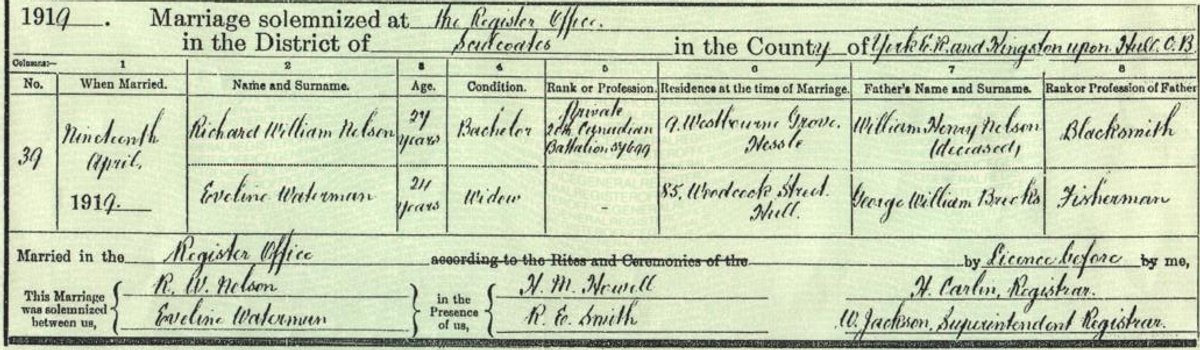 1919. Marriage solemnized at the Register Office.
in the District of Sculcoates in the County of York E.R. and Kingston upon Hull C.B
Columns:— 1 2 3 4 5 6 7 8
No. When Married. Name and Surname. Age. Condition. Rank or Profession. Residence at the time of Marriage. Father's Name and Surname. Rank or Profession of Father
39 Nineteenth April. 1919. Richard William Nelson 27 years Bachelor Private Canadian Battalion 9. Westbourne Grove. Hessle William Henry Nelson (deceased) Blacksmith
Eveline Waterman 24 years Widow - 85, Woodcock Street. Hull. George William Fisherman
Married in the Register Office according to the Rites and Ceremonies of the by Licence before by me,
This Marriage was solemnized between us, R. W. Nelson in the Presence of us, H. M. Howell H. Carlin, Registrar.
Eveline Waterman R. E. Smith W. Jackson, Superintendent Registrar.